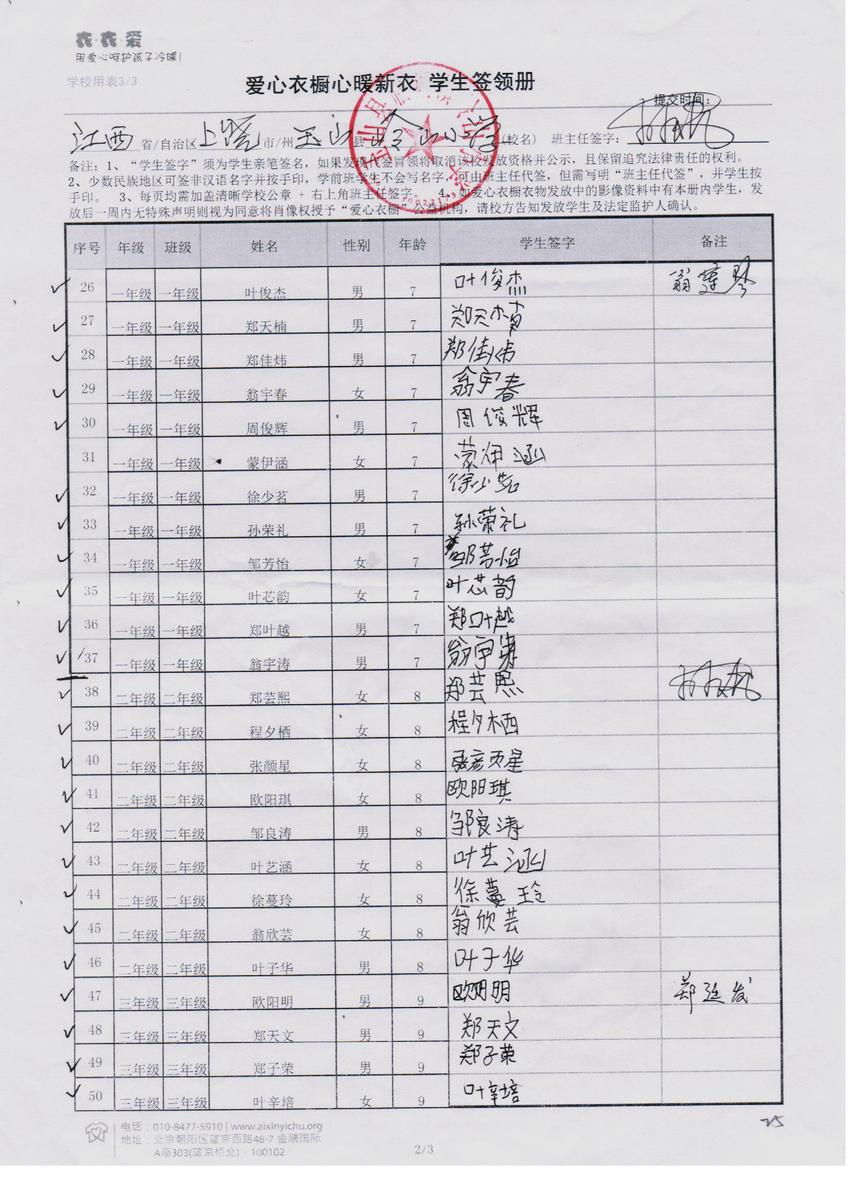 衣·衣·爱
用爱心呵护孩子冷暖!
学校用表3/3
爱心衣橱心暖新衣 学生签领册
提交时间:
江西 省/自治区 上饶 市/州 玉山 县 小学 (校名) 班主任签字:
备注: 1、“学生签字”须为学生亲笔签名,如果发现代签冒领将取消该校发放资格并公示,且保留追究法律责任的权利。
2、少数民族地区可签非汉语名字并按手印,学前班学生不会写名字,可由班主任代签,但需写明“班主任代签”,并学生按
手印。 3、每页均需加盖清晰学校公章 + 右上角班主任签字。 4、如爱心衣橱衣物发放中的影像资料中有本册内学生,发
放后一周内无特殊声明则视为同意将肖像权授予“爱心衣橱”公益机构,请校方告知发放学生及法定监护人确认。
序号 年级 班级 姓名 性别 年龄 学生签字 备注
26 一年级 一年级 叶俊杰 男 7 叶俊杰
27 一年级 一年级 郑天楠 男 7 郑天楠
28 一年级 一年级 郑佳炜 男 7 郑佳炜
29 一年级 一年级 翁宇春 女 7 翁宇春
30 一年级 一年级 周俊辉 男 7 周俊辉
31 一年级 一年级 蒙伊涵 女 7 蒙伊涵
32 一年级 一年级 徐少茗 男 7 徐少茗
33 一年级 一年级 孙荣礼 男 7 孙荣礼
34 一年级 一年级 邹芳怡 女 7 邹芳怡
35 一年级 一年级 叶芯韵 女 7 叶芯韵
36 一年级 一年级 郑叶越 男 7 郑叶越
37 一年级 一年级 翁宇涛 男 7 翁宇涛
38 二年级 二年级 郑芸熙 女 8 郑芸熙
39 二年级 二年级 程夕栖 女 8 程夕栖
40 二年级 二年级 张颜星 女 8 张颜星
41 二年级 二年级 欧阳琪 女 8 欧阳琪
42 二年级 二年级 邹良涛 男 8 邹良涛
43 二年级 二年级 叶艺涵 女 8 叶艺涵
44 二年级 二年级 徐蔓玲 女 8 徐蔓玲
45 二年级 二年级 翁欣芸 女 8 翁欣芸
46 二年级 二年级 叶子华 男 8 叶子华
47 三年级 三年级 欧阳明 男 9 欧阳明 郑延发
48 三年级 三年级 郑天文 男 9 郑天文
49 三年级 三年级 郑子荣 男 9 郑子荣
50 三年级 三年级 叶辛培 女 9 叶辛培
25
电话: 010-8477-5910 | www.aixinyichu.org
地址: 北京朝阳区望京西路48-7 金隅国际
A座303(望京桥北) · 100102
2/3